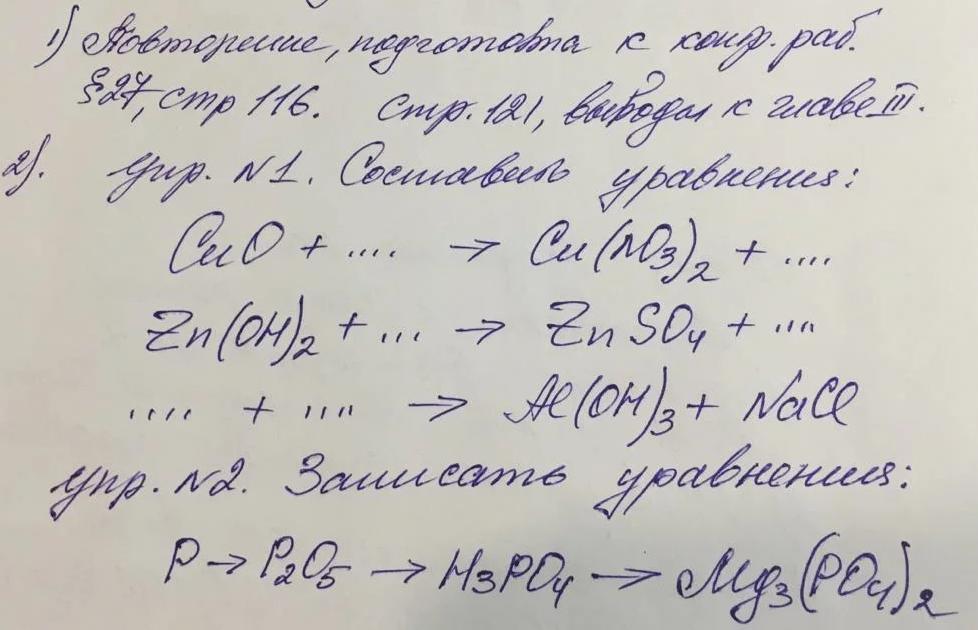 1) Повторение, подготовка к контр. раб.
§27, стр 116. стр. 121, выводы к главе III.
2). Упр. N1. Составить уравнения:
CuO + .... → Cu(NO3)2 + ....
Zn(OH)2 + ... → ZnSO4 + ....
.... + .... → Al(OH)3 + NaCl
Упр. N2. Записать уравнения:
P → P2O5 → H3PO4 → Mg3(PO4)2